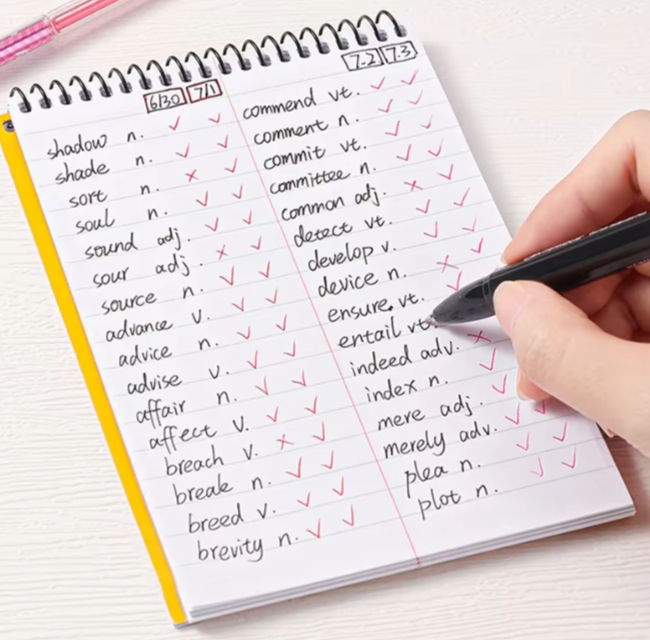 6/30 7/1
shadow n. ✓ ✓
shade n. ✓ ✓
sort n. × ✓
soul n. ✓ ✓
sound adj. ✓ ✓
sour adj. × ✓
source n. ✓ ✓
advance v. ✓ ✓
advice n. ✓ ✓
advise v. ✓ ✓
affair n. ✓ ✓
affect v. ✓ ✓
breach v. × ✓
break n. ✓ ✓
breed v. ✓ ✓
brevity n. ✓ ✓
7.2 7.3
commend vt. ✓ ✓
comment n. ✓ ✓
commit vt. ✓ ✓
committee n. ✓ ✓
common adj. × ✓
detect vt. ✓ ✓
develop v. ✓ ✓
device n. × ✓
ensure vt. ✓
entail vt.
indeed adv. ×
index n. ✓
mere adj. ✓
merely adv. ✓ ✓
plea n. ✓ ✓
plot n. ✓ ✓